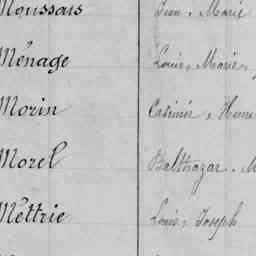 Moussais Jean, Marie
Ménage Louis, Marie,
Morin Casimir,
Morel Balthazar,
Mettrie Louis, Joseph